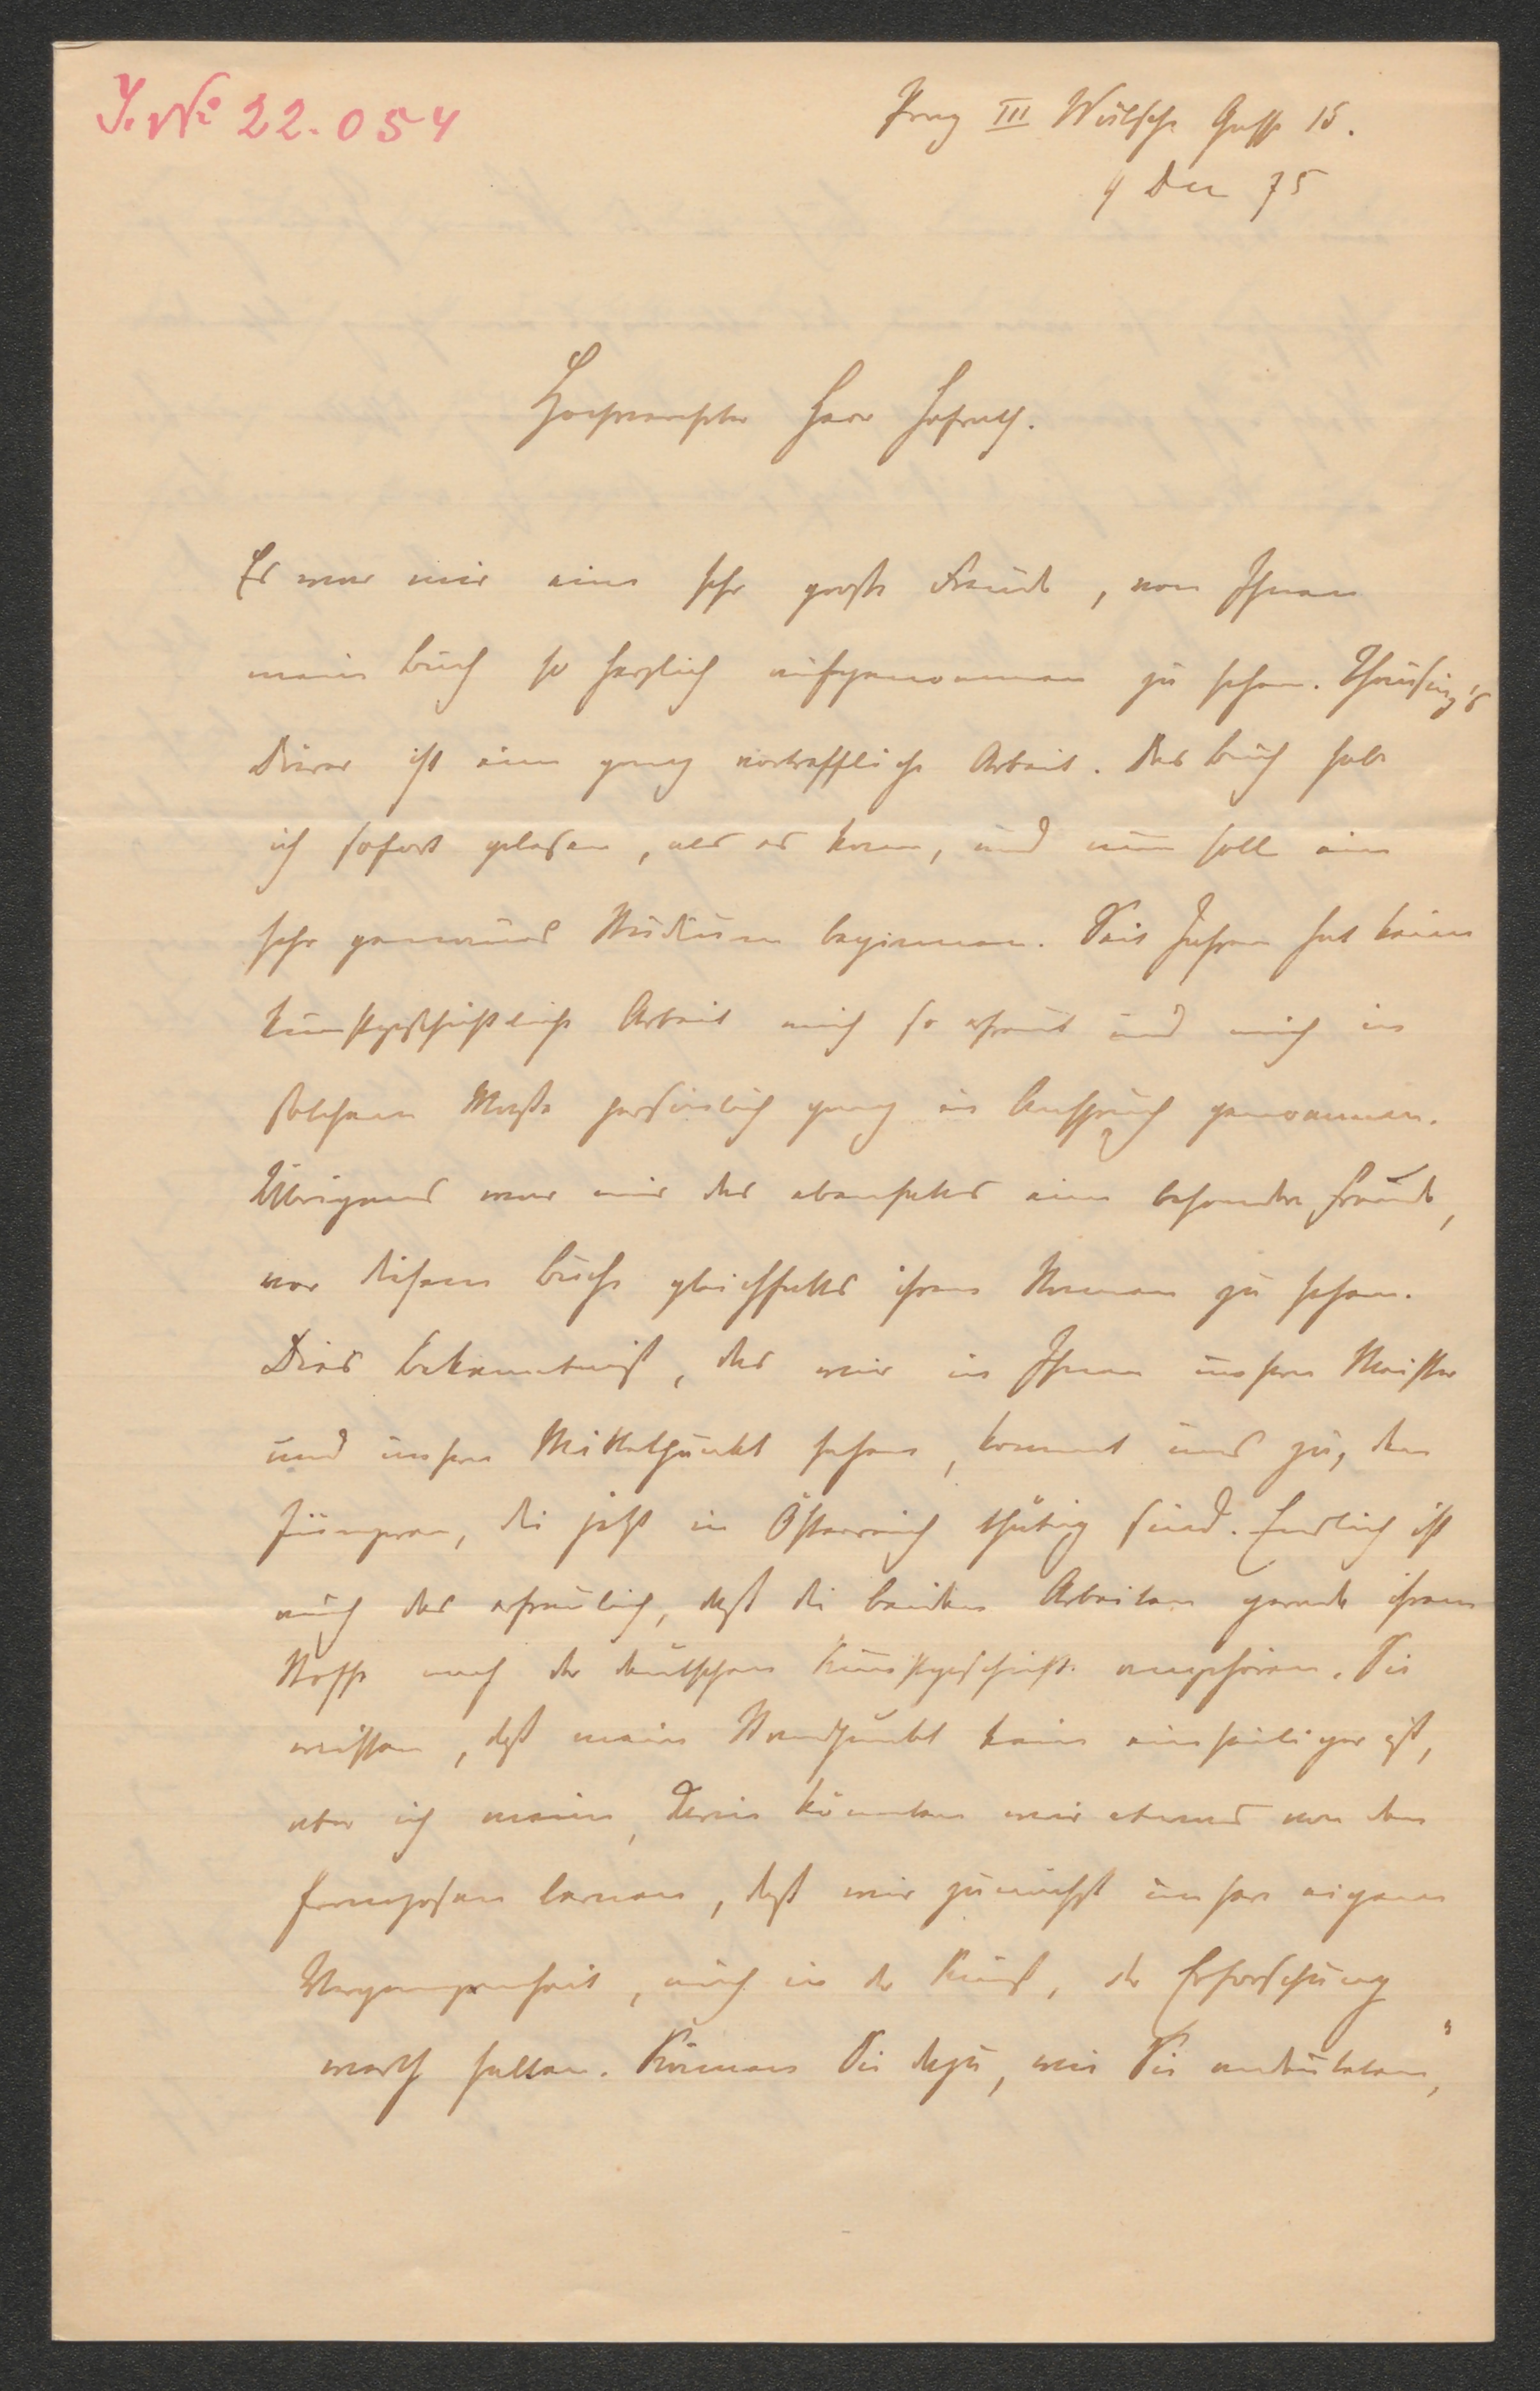 J. No 22.054
Prag III Wälsche Gasse 15.
4 Dec 75
Hochverehrter Herr Hofrath.
Es war mir eine sehr große Freude, von Ihnen
mein Buch so herzlich aufgenommen zu sehen. Thausing's
Dürer ist eine ganz vortreffliche Arbeit. Das Buch habe
ich sofort gelesen, als es kam, und nun soll ein
sehr genaues Studium beginnen. Seit Jahren hat keine
kunstgeschichtliche Arbeit mich so erfreut und mich in
solchem Maße persönlich ganz in Anspruch genommen.
Übrigens war mir das ebenfalls eine besondere Freude,
vor diesem Buche gleichfalls ihren Namen zu sehen.
Dies Bekenntniß, das wir in Ihnen unsern Meister
und unsern Mittelpunkt sehen, kommt uns zu, den
Jüngeren, die jetzt in Österreich thätig sind. Endlich ist
auch das erfreulich, daß die beiden Arbeiten gerade ihrem
Stoffe nach der deutschen Kunstgeschichte angehören. Sie
wissen, daß mein Standpunkt kein einseitiger ist,
aber ich meine, darin könnten wir etwas von den
Franzosen lernen, daß wir zunächst unsere eigene
Vergangenheit, auch in der Kunst, der Erforschung
werth halten. Kommen Sie dazu, wie Sie andeuteten,